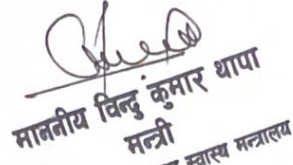 माननीय विन्दु कुमार थापा
मन्त्री
स्वास्थ्य मन्त्रालय